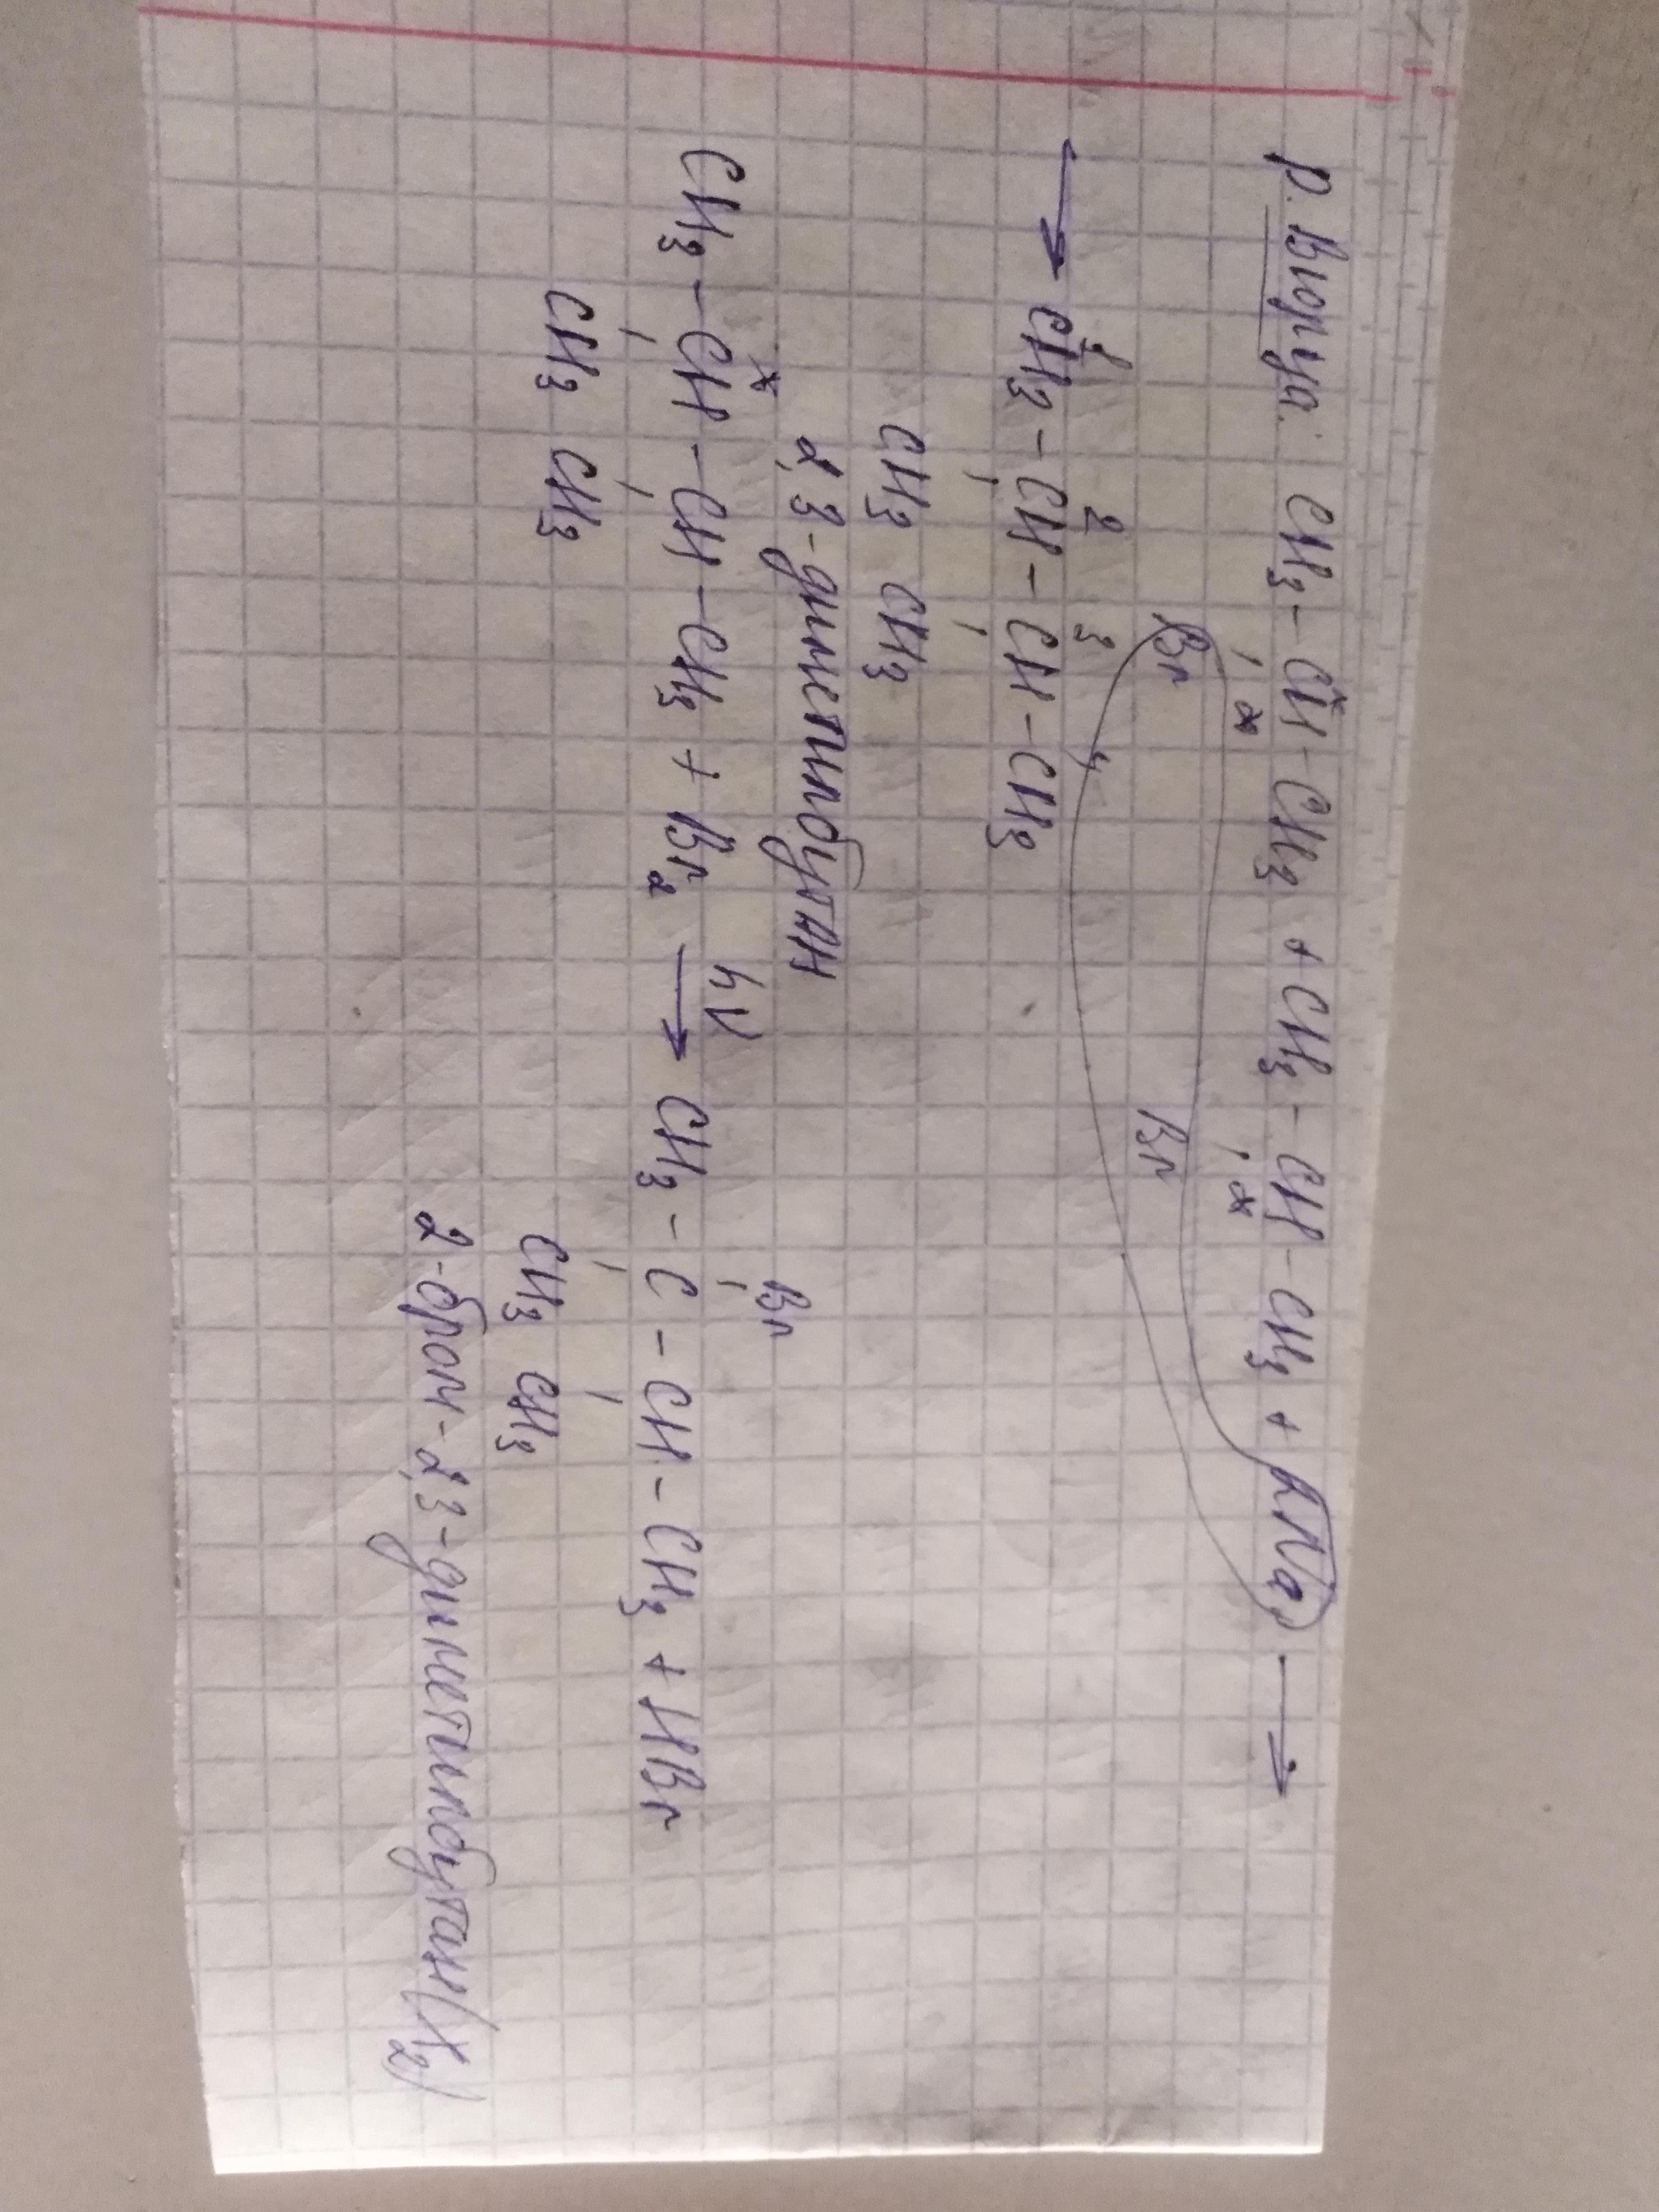 р. Вюрца: CH3 - CH - CH3 + CH3 - CH - CH3 + 2Na →
Br Br
1 2 3 4
→ CH3 - CH - CH - CH3
CH3 CH3
2,3-диметилбутан
CH3 - CH - CH - CH3 + Br2 hν → CH3 - C - CH - CH3 + HBr
Br
CH3 CH3 CH3 CH3
2-бром-2,3-диметилбутан (X2)